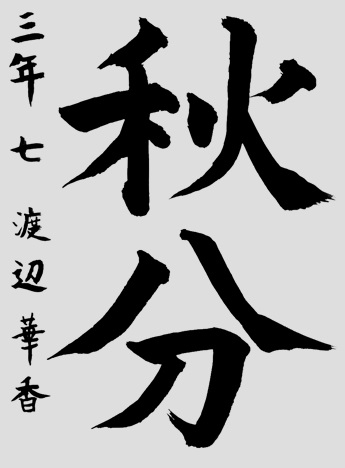 秋分
三年 七 渡辺 華香